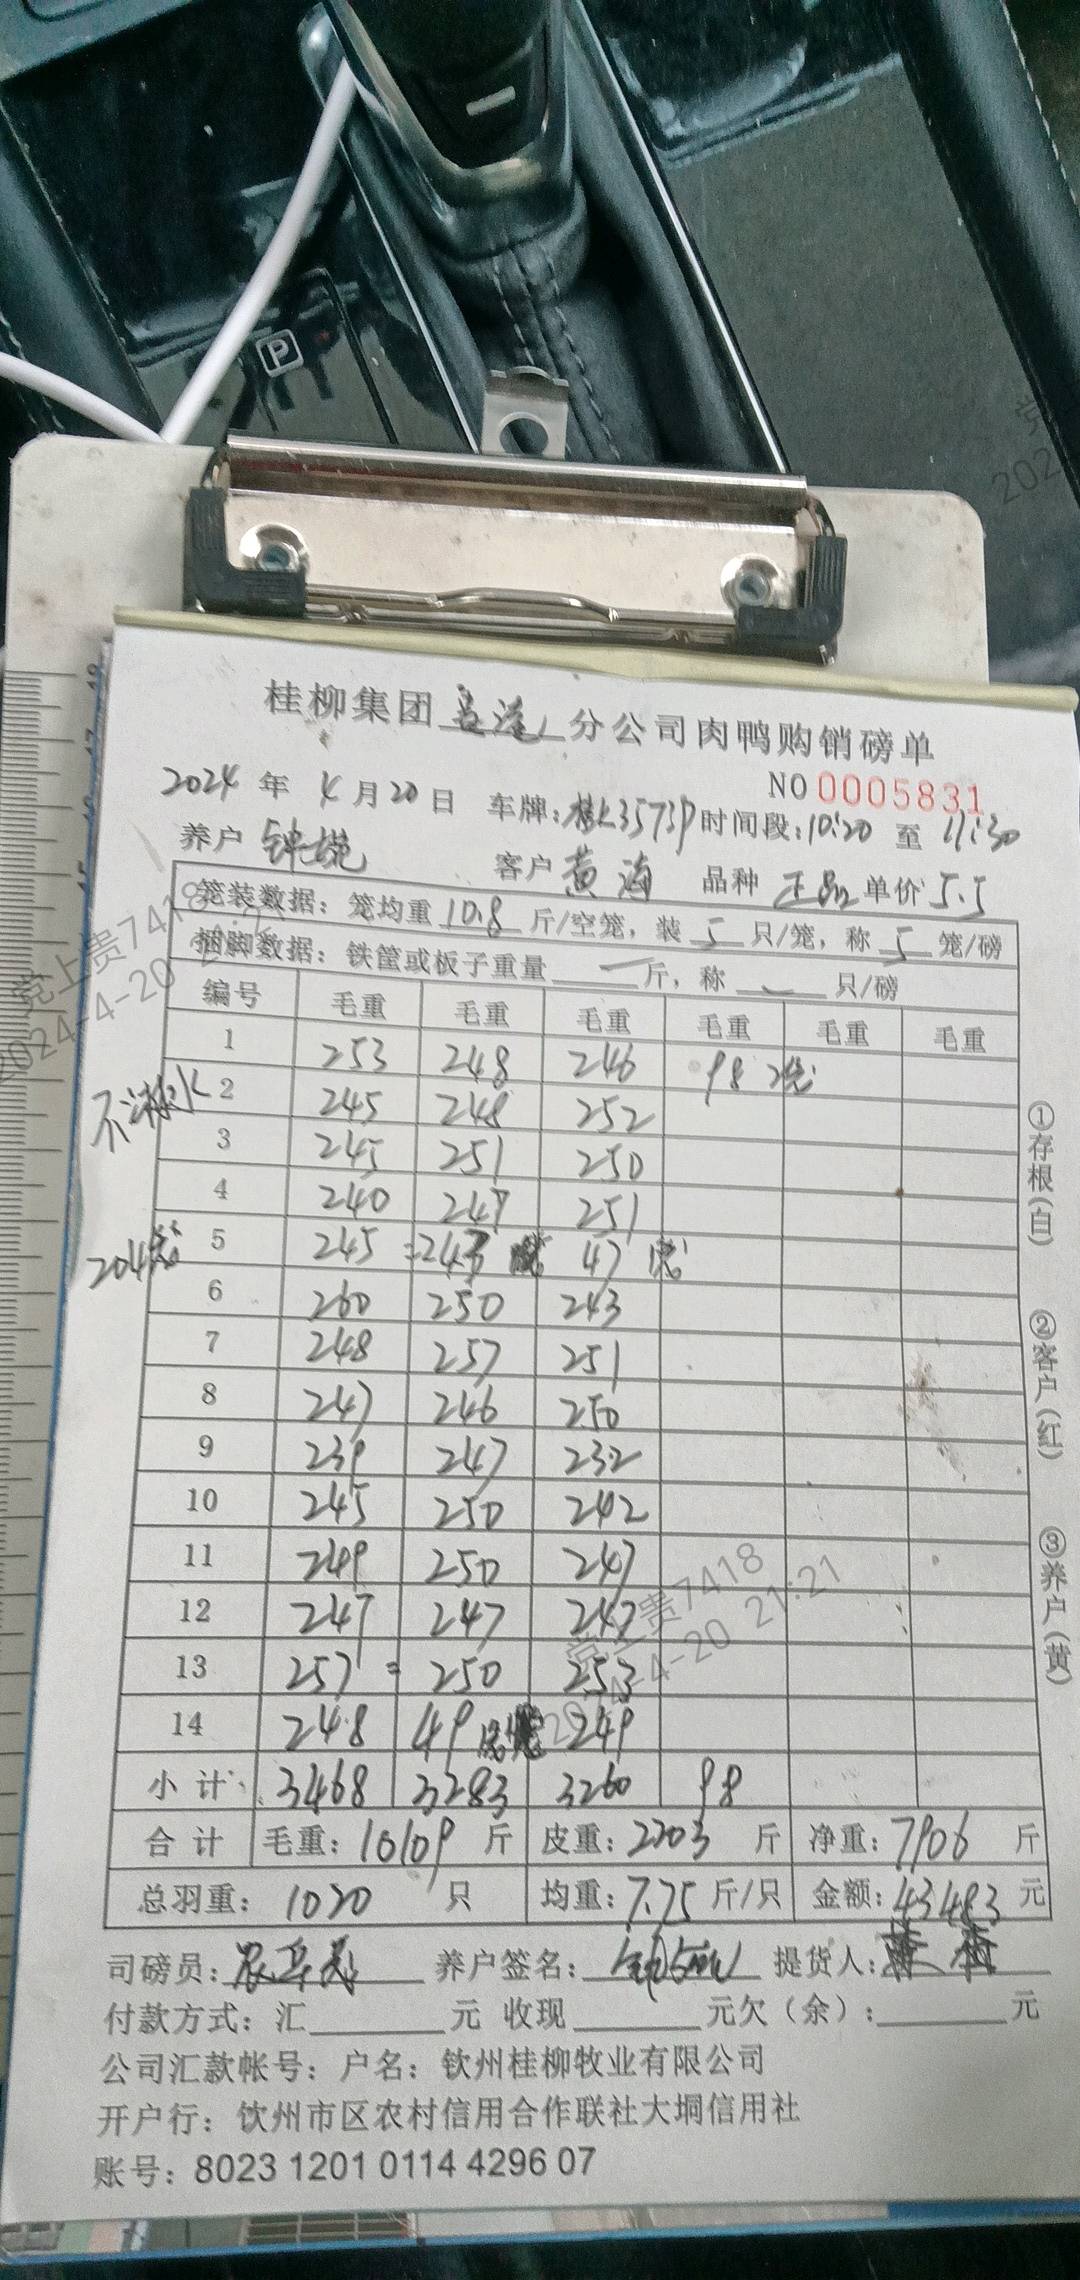 P
桂柳集团 分公司肉鸭购销磅单
NO 0005831
2024 年 4 月 20 日 车牌: 时间段:10:20 至 11:30
养户 钟 客户 黄海 品种 正品 单价 5.5
笼装数据:笼均重 10.8 斤/空笼,装 5 只/笼,称 5 笼/磅
捆脚数据:铁筐或板子重量 斤,称 只/磅
编号 毛重 毛重 毛重 毛重 毛重 毛重
1 253 248 246 98 2笼
不淋水 2 245 248 252
3 245 251 250
4 240 247 251
204笼 5 245 243 47
6 260 250 243
7 248 257 251
8 247 246 250
9 239 247 232
10 245 250 242
11 249 250 247
12 247 247 247
13 257 = 250 253
14 248 49 249
小计 3468 3283 3260 98
合计 毛重:10109 斤 皮重:2203 斤 净重:7906 斤
总羽重:1020 只 均重:7.75 斤/只 金额:43483 元
司磅员: 养户签名: 提货人:
付款方式:汇 元 收现 元欠(余): 元
公司汇款帐号:户名:钦州桂柳牧业有限公司
开户行:钦州市区农村信用合作联社大垌信用社
账号:8023 1201 0114 4296 07
①存根(白)
②客户(红)
③养户(黄)
党上贵7418
2024-4-20 21:21
党上贵7418
2024-4-20 21:21